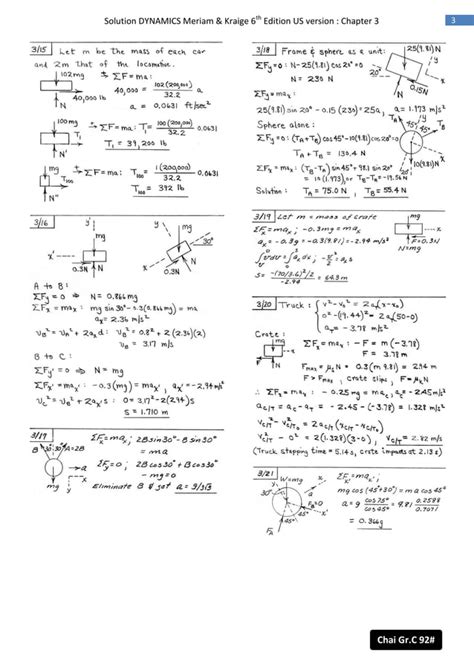 Solution DYNAMICS Meriam & Kraige 6th Edition US version : Chapter 3
3
3/15 Let m be the mass of each car
and 2m that of the locomotive.
102mg
→ΣF = ma:
40,000 = 102(200,000)/32.2 a
40,000 lb
N
a = 0.0631 ft/sec²
100mg
→ΣF = ma: T₁ = 100(200,000)/32.2 0.0631
T₁
N'
T₁ = 39,200 lb
mg
→ΣF = ma: T₁₀₀ = 1(200,000)/32.2 0.0631
T₁₀₀
N
T₁₀₀ = 392 lb
3/16
y'
mg
x'
0.3N
N
y
mg
30°
x
0.3N
N
A to B:
ΣFy = 0 ⇒ N = 0.866mg
ΣFx = max: mg sin 30° - 0.3(0.866mg) = max
ax = 2.36 m/s²
vB² = vA² + 2axd: vB² = 0.8² + 2(2.36)(2)
vB = 3.17 m/s
B to C:
ΣFy' = 0 ⇒ N = mg
ΣFx' = max': -0.3(mg) = max', ax' = -2.94 m/s²
vC² = vB² + 2ax's: 0 = 3.17² - 2(2.94)s
s = 1.710 m
3/17
B
30° 30°
A
a
mg
y
x
ΣFx = max; 2B sin 30° - B sin 30°
= ma
ΣFy = 0; 2B cos 30° + B cos 30°
- mg = 0
Eliminate B & get a = g/3√3
3/18 Frame & sphere as a unit:
ΣFy = 0: N - 25(9.81) cos 20° = 0
N = 230 N
25(9.81) N
y
20°
x
0.15N
N
ΣFx = max:
25(9.81) sin 20° - 0.15(230) = 25a, a = 1.973 m/s²
Sphere alone:
ΣFy = 0: (TA + TB) cos 45° - 10(9.81) cos 20° = 0
TA + TB = 130.4 N
TA
TB
45° 45°
y
20°
x
10(9.81) N
ΣFx = max: (TB - TA) sin 45° + 98.1 sin 20°
= 10(1.973), or TB - TA = -19.56 N
Solution: TA = 75.0 N, TB = 55.4 N
3/19 Let m = mass of crate
ΣFx = max; -0.3mg = max
ax = -0.3g = -0.3(9.81) = -2.94 m/s²
∫v dv = ∫ax dx;
s = -(70/3.6)²/2 / -2.94 = 64.3 m
mg
x
F = 0.3N
N = mg
3/20 Truck:
v² - v₀² = 2a(x - x₀)
0² - (19.44)² = 2a(50-0)
a = -3.78 m/s²
Crate:
mg
x
F
N
ΣFx = max: -F = m(-3.78)
F = 3.78m
Fmax = μsN = 0.3(m 9.81) = 2.94m
F > Fmax, crate slips, F = μkN
∴ ΣFx = max: -0.25mg = mac, ac = -2.45 m/s²
aC/T = aC - aT = -2.45 - (-3.78) = 1.328 m/s²
vC/T² - vC/T₀² = 2aC/T(x - x₀)
vC/T² - 0² = 2(1.328)(3-0), vC/T = 2.82 m/s
(Truck stopping time = 5.14 s, crate impacts at 2.13 s)
3/21
y
W = mg
x
30°
a
45°
45°
x'
ΣFx' = max':
mg cos(45°+30°) = ma cos 45°
a = g cos 75°/cos 45° = 9.81 0.2588/0.7071
= 0.366g
Chai Gr.C 92#